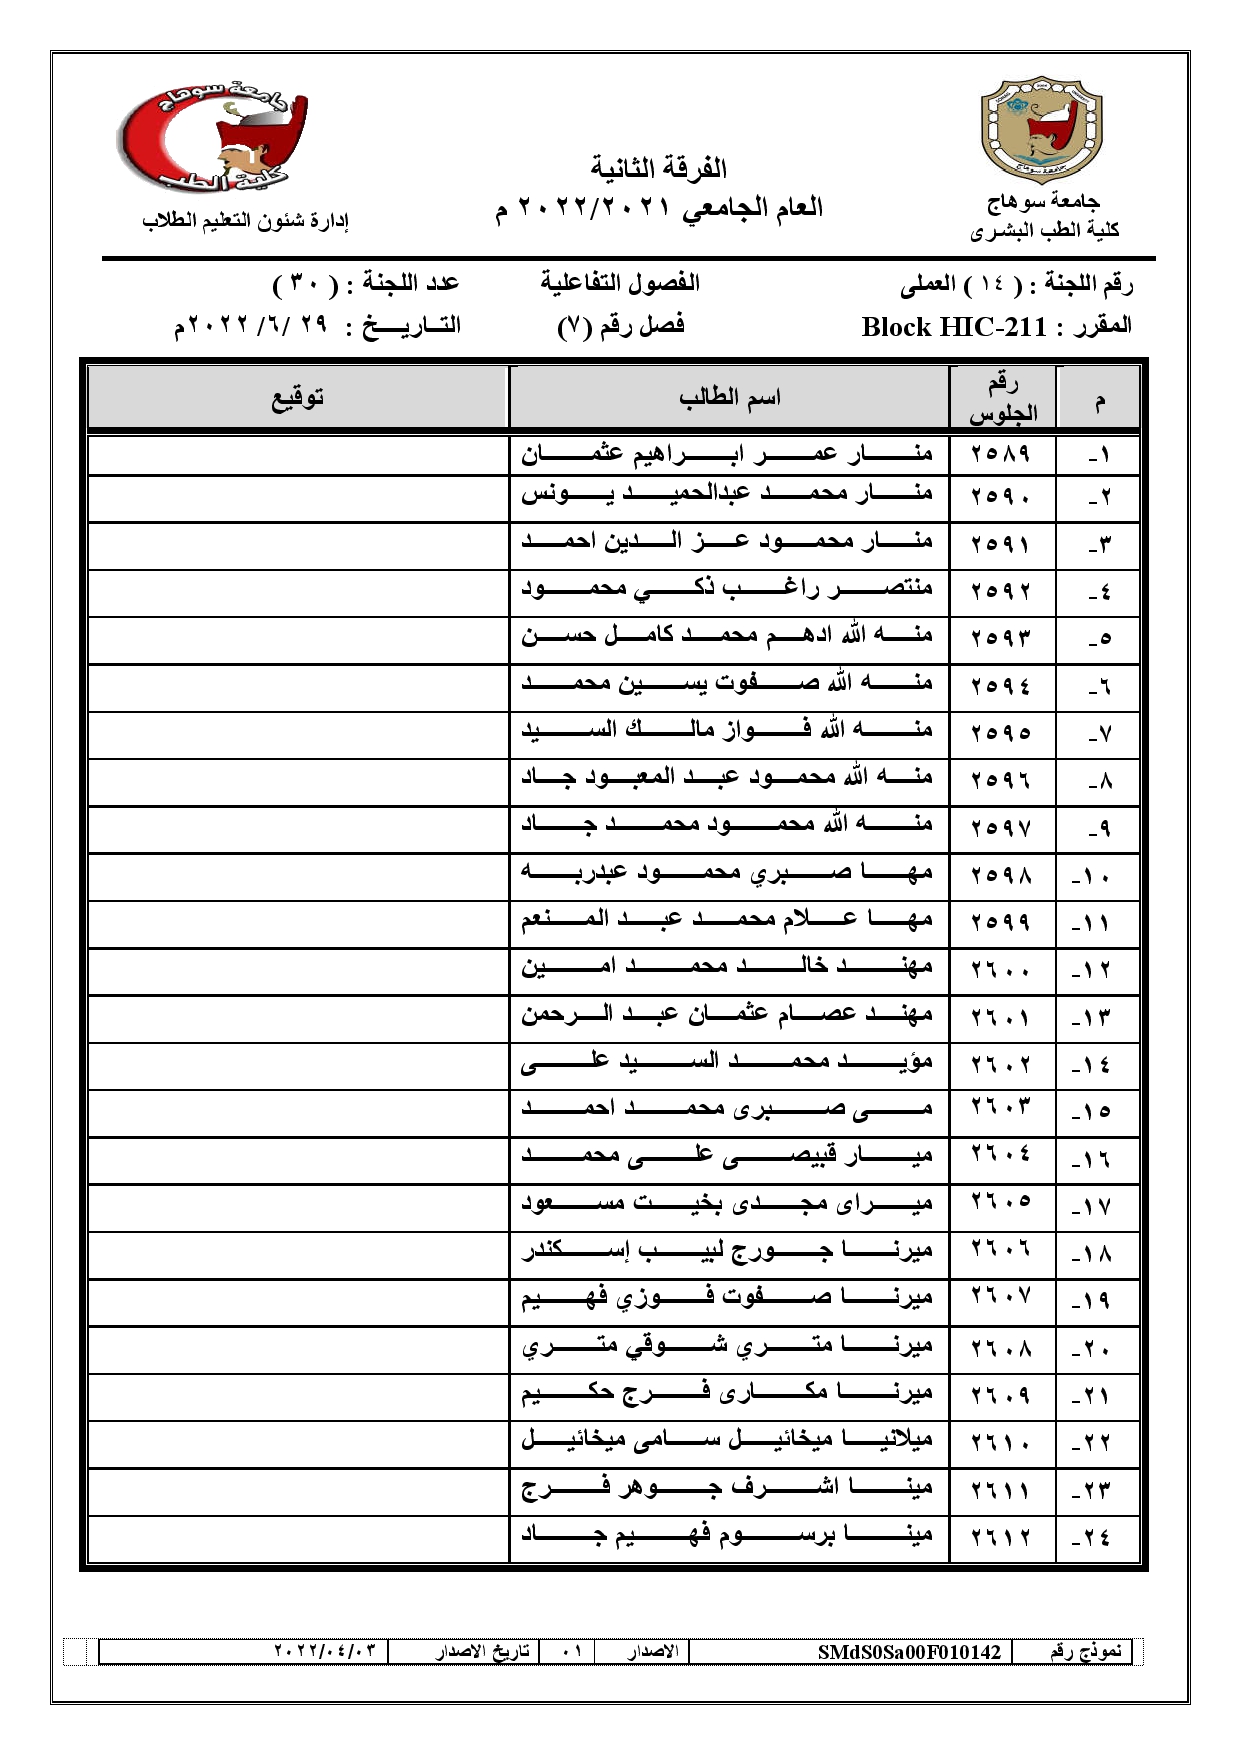 جامعة سوهاج
كلية الطب
جامعة سوهاج
الفرقة الثانية
العام الجامعي ٢٠٢٢/٢٠٢١ م
جامعة سوهاج
كلية الطب البشرى
إدارة شئون التعليم الطلاب
رقم اللجنة : ( ١٤ ) العملى الفصول التفاعلية عدد اللجنة : ( ٣٠ )
المقرر : Block HIC-211 فصل رقم (٧) التاريخ : ٢٩ /٦/ ٢٠٢٢م
م رقم الجلوس اسم الطالب توقيع
١- ٢٥٨٩ منار عمر ابراهيم عثمان
٢- ٢٥٩٠ منار محمد عبدالحميد يونس
٣- ٢٥٩١ منار محمود عز الدين احمد
٤- ٢٥٩٢ منتصر راغب ذكي محمود
٥- ٢٥٩٣ منه الله ادهم محمد كامل حسن
٦- ٢٥٩٤ منه الله صفوت يسين محمد
٧- ٢٥٩٥ منه الله فواز مالك السيد
٨- ٢٥٩٦ منه الله محمود عبد المعبود جاد
٩- ٢٥٩٧ منه الله محمود محمد جاد
١٠- ٢٥٩٨ مها صبري محمود عبدربه
١١- ٢٥٩٩ مها علام محمد عبد المنعم
١٢- ٢٦٠٠ مهند خالد محمد امين
١٣- ٢٦٠١ مهند عصام عثمان عبد الرحمن
١٤- ٢٦٠٢ مؤيد محمد السيد على
١٥- ٢٦٠٣ مى صبرى محمد احمد
١٦- ٢٦٠٤ ميار قبيصى على محمد
١٧- ٢٦٠٥ ميراى مجدى بخيت مسعود
١٨- ٢٦٠٦ ميرنا جورج لبيب إسكندر
١٩- ٢٦٠٧ ميرنا صفوت فوزي فهيم
٢٠- ٢٦٠٨ ميرنا متري شوقي متري
٢١- ٢٦٠٩ ميرنا مكارى فرج حكيم
٢٢- ٢٦١٠ ميلانيا ميخائيل سامى ميخائيل
٢٣- ٢٦١١ مينا اشرف جوهر فرج
٢٤- ٢٦١٢ مينا برسوم فهيم جاد
نموذج رقم SMdS0Sa00F010142 الاصدار ٠١ تاريخ الاصدار ٢٠٢٢/٠٤/٠٣